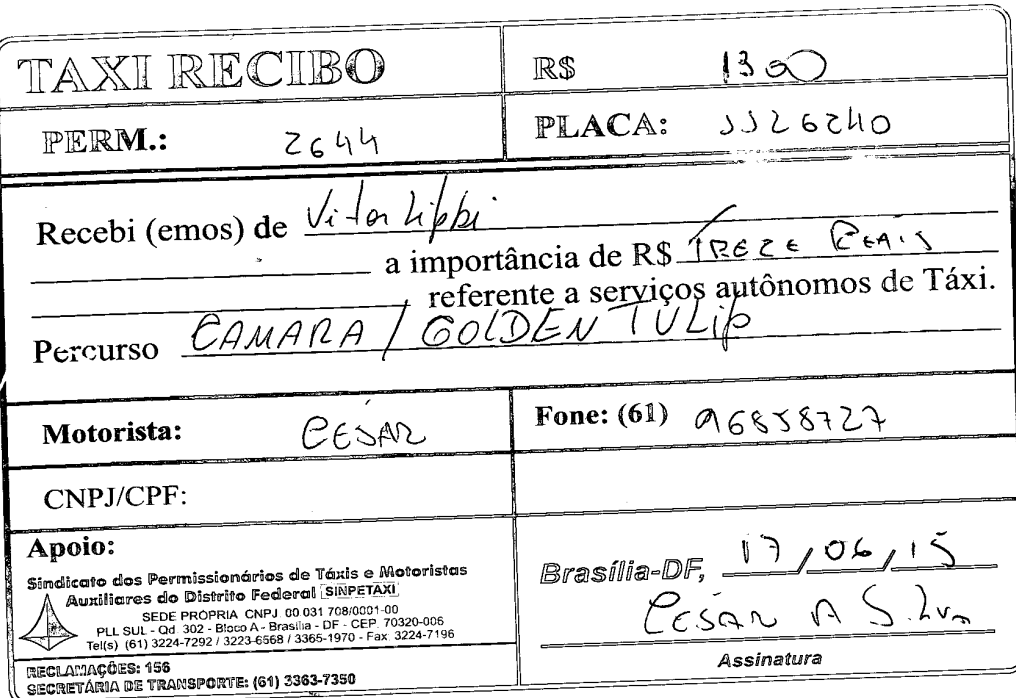 TAXI RECIBO
R$ 13,00
PERM.: 2644
PLACA: JJ26240
Recebi (emos) de Vitor Lippi
a importância de R$ TREZE REAIS
referente a serviços autônomos de Táxi.
Percurso CAMARA / GOLDEN TULip
Motorista: CESAR
Fone: (61) 96858727
CNPJ/CPF:
Apoio:
Sindicato dos Permissionários de Táxis e Motoristas
Auxiliares do Distrito Federal SINPETAXI
SEDE PROPRIA CNPJ 00 031 708/0001-00
PLL SUL - Qd. 302 - Bloco A - Brasilia - DF - CEP. 70320-006
Tel(s) (61) 3224-7292 / 3223-6568 / 3365-1970 - Fax: 3224-7196
RECLAMAÇÕES: 156
SECRETÁRIA DE TRANSPORTE: (61) 3363-7350
Brasília-DF, 17/06/15
CESAR A SILVA
Assinatura